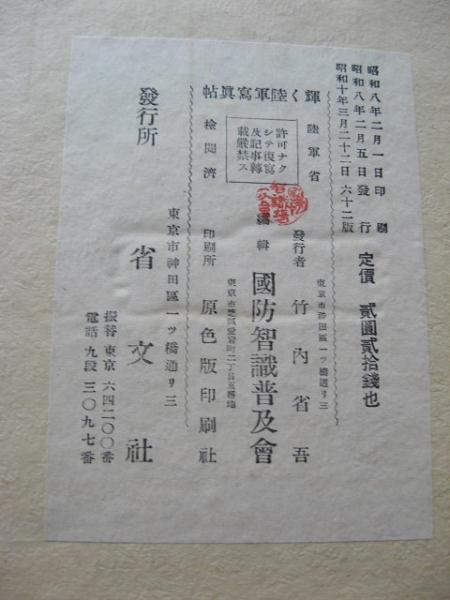 昭和八年二月一日印刷
昭和八年二月五日發行
昭和十年三月二十二日六十二版
定價 貳圓貳拾錢也
輝く陸軍寫眞帖
陸軍省
許可ナク
シテ復寫
及記事轉
載嚴禁ス
檢閱濟
東京市神田區一ッ橋通リ三
發行者 竹內省吾
編輯 國防智識普及會
東京市芝區愛宕町二丁目五番地
印刷所 原色版印刷社
發行所
東京市神田區一ッ橋通リ三
省文社
振替東京六四二〇〇番
電話九段三〇九七番